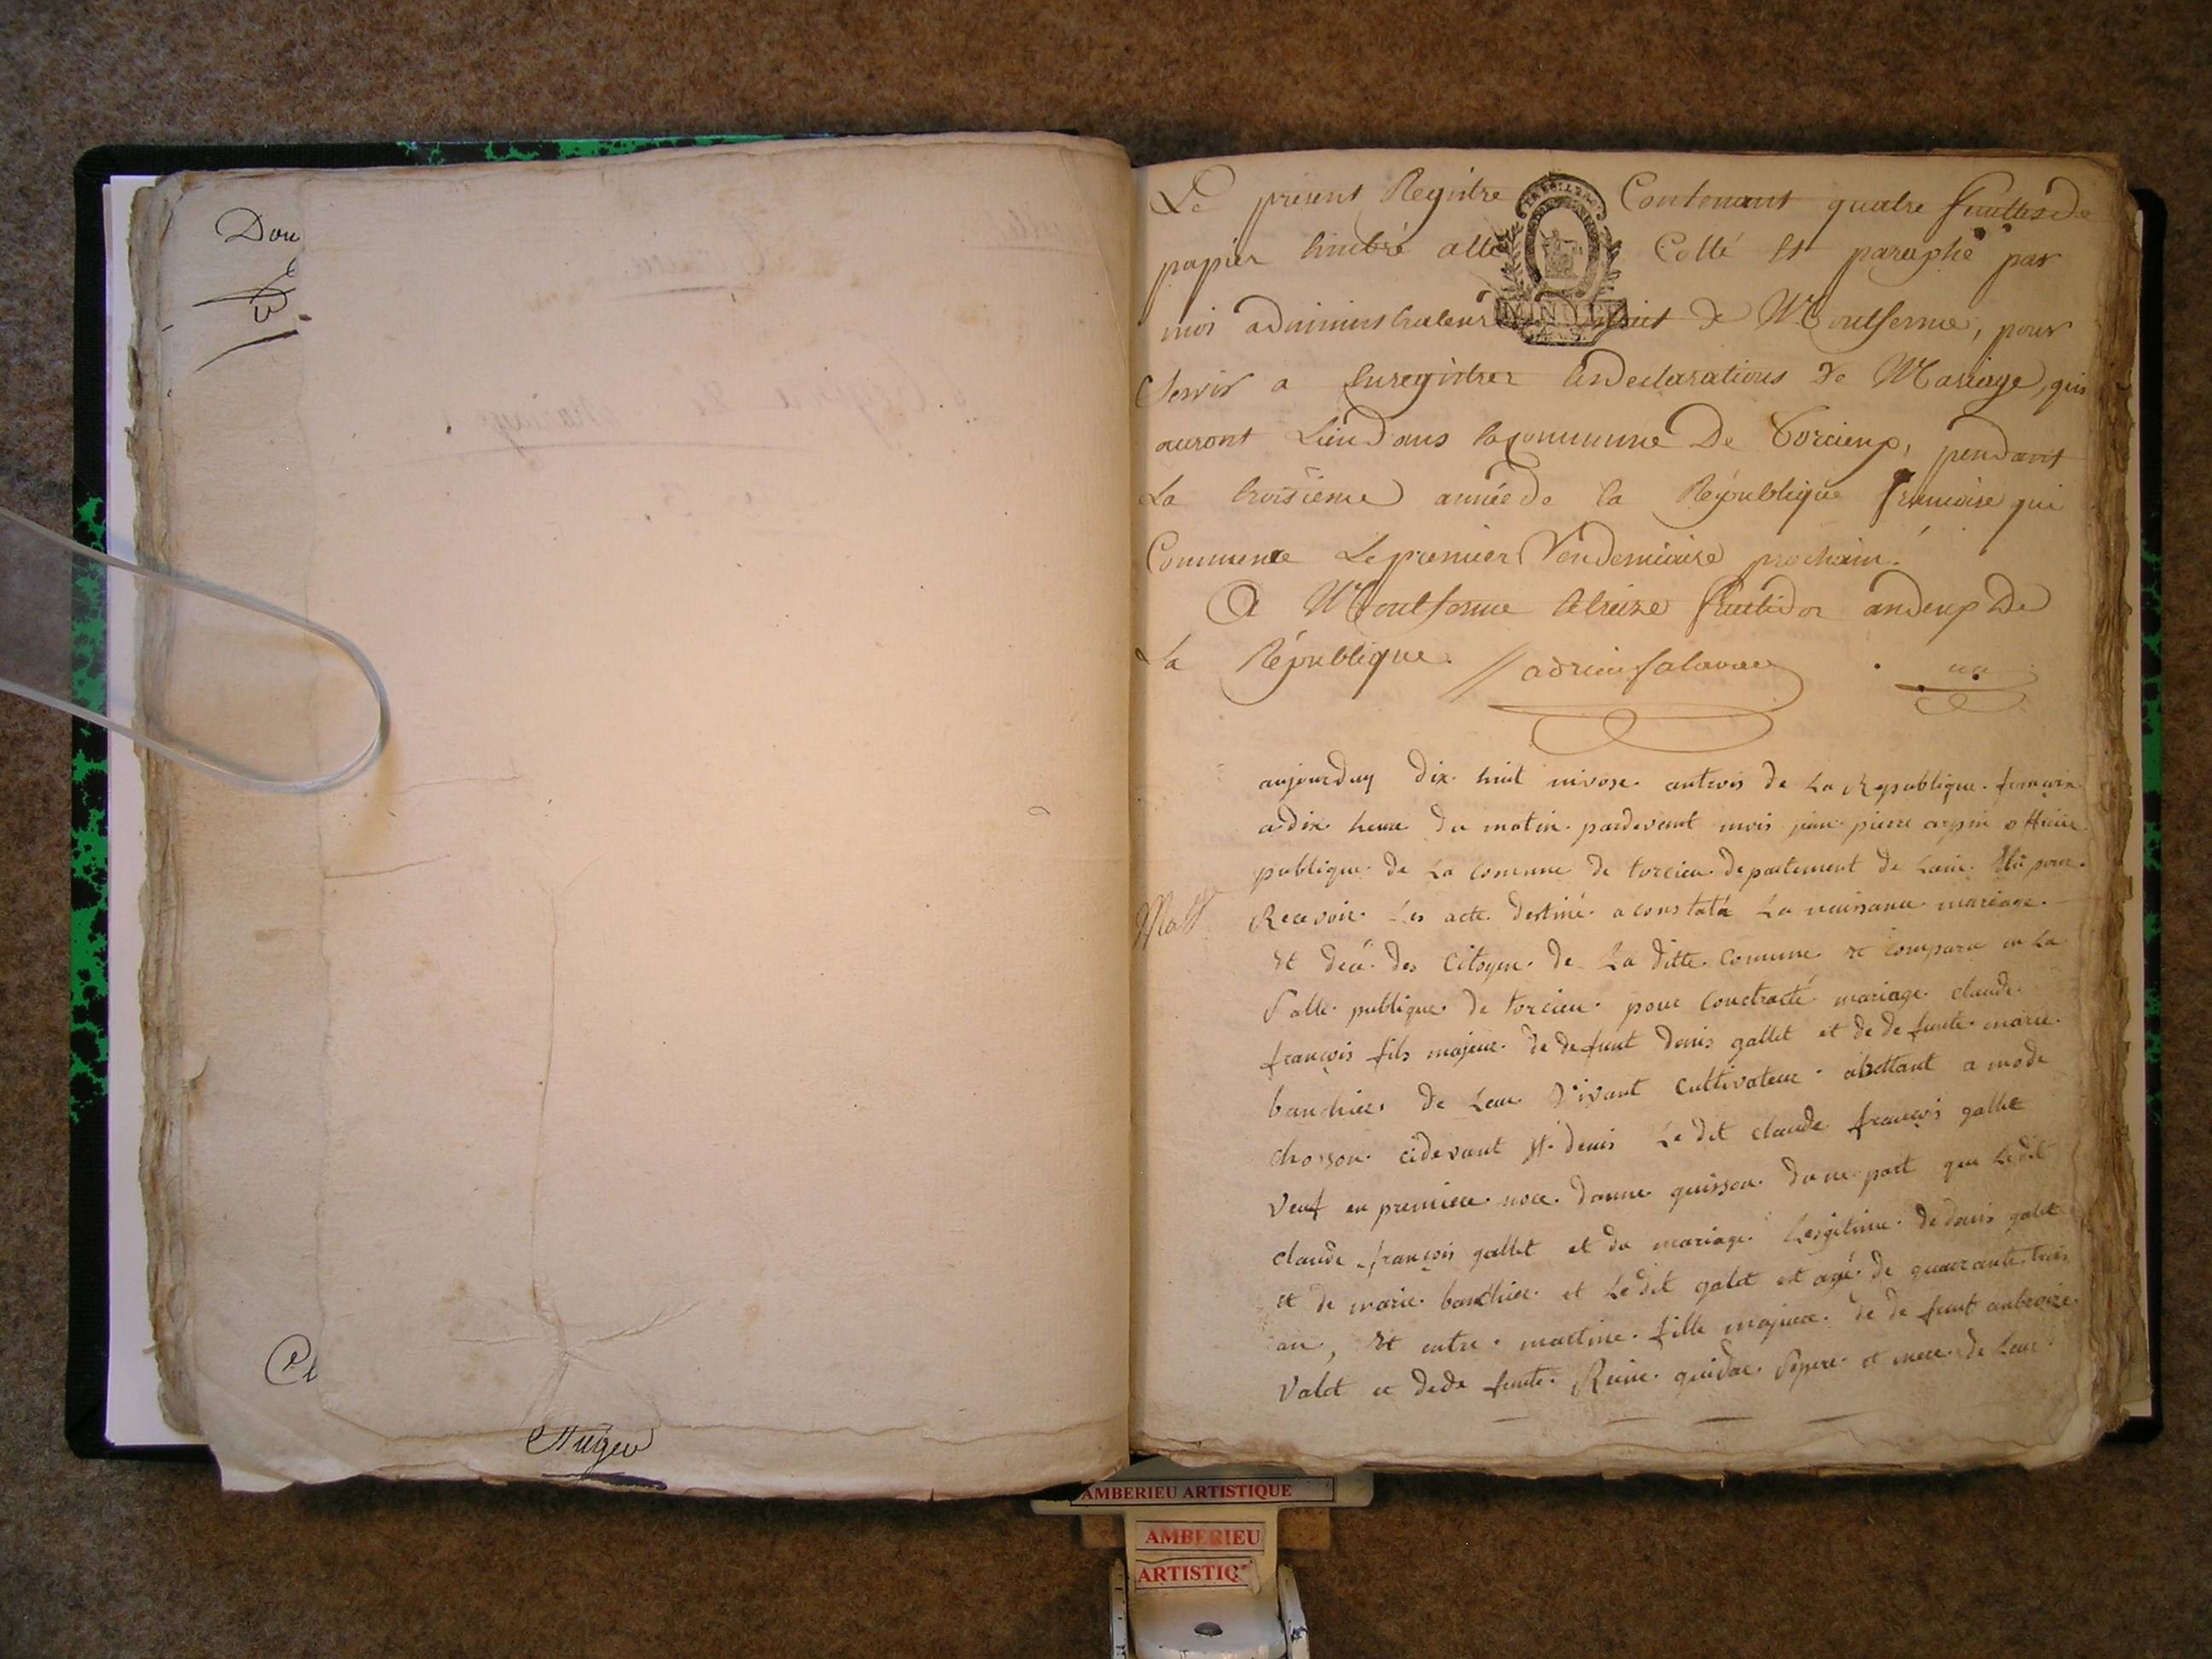 Dou
Le présent Registre Contenant quatre feuilles de
papier timbré Cotté Et paraphé par
moi administrateur du District de Montferme, pour
Servir a Enregistrer les declarations de Mariage, qui
auront Lieu dans la commune De Torcieux, pendant
La troisieme année de la République francoise qui
Commence Le premier Vendemiaire prochain.
A Montferme le treize fructidor an deux De
La République.
MINUTE
aujourduy dix huit nivose antrois de La Republique francoise
a dix heure du matin pardevant mois jean pierre arpin officier
publique de La comune de torcieu departement de Lain Elu pour
Recevoir Les acte destiné a constaté La naissance mariage
Et décé des Citoyen de La ditte Comune et comparu en La
Salle publique de torcieu pour contracté mariage claude
françois fils majeur de defunt denis gallet et de defunte marie
banchier de Leur vivant Cultivateur abittant a mode
chosson cidevant St denis Le dit claude françois gallet
Veuf en premiere noce danne guisson dune part que Ledit
claude françois gallet et du mariage Lesgitime de denis galet
et de marie banchier et Ledit galet est agé de quarante trois
an, Et entre martine fille majeure de defunt anbroise
Valet et dede funte Reine guidoe Sepere et mere de Leur
Cl
AMBERIEU ARTISTIQUE
AMBERIEU
ARTISTIQ